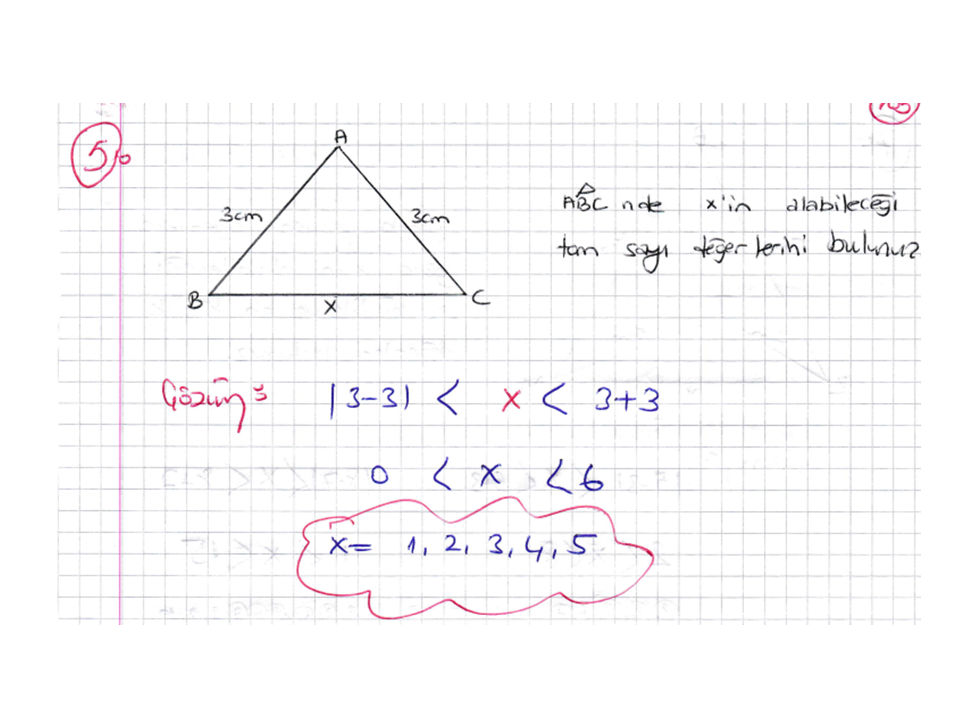 5)
A
3cm 3cm
B x C
ABC nde x'in alabileceği
tam sayı değerlerini bulunuz
Çözüm:
|3-3| < x < 3+3
0 < x < 6
x= 1, 2, 3, 4, 5